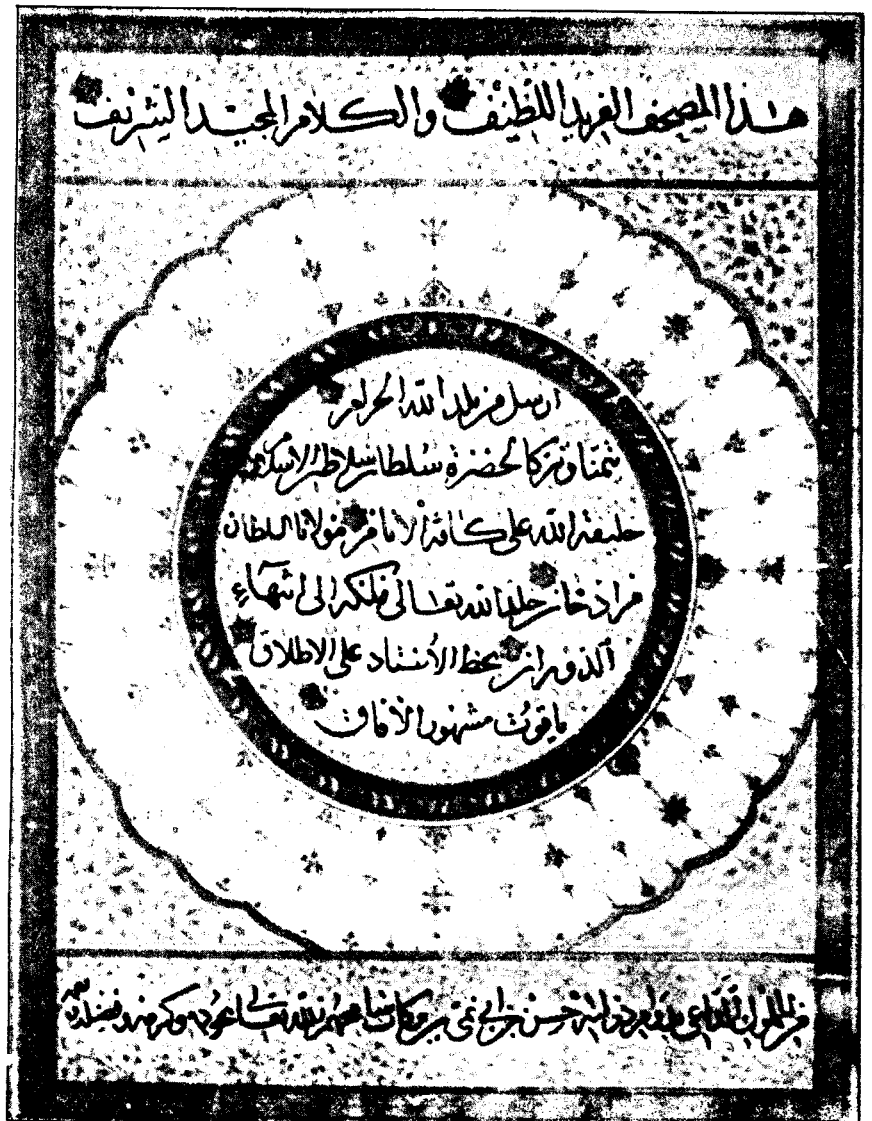 هذا المصحف الفريد اللطيف والكلام المجيد الشريف
ارسل من بلد الله الحرام
تيمنا وتبركا لحضرة سلطان سلاطين الاسلام
خليفة الله على كافة الانام مولانا السلطان
مراد خان خلد الله تعالى ملكه الى انتهاء
الدوران بخط الأستاذ على الاطلاق
ياقوت مشهور الآفاق
من المملوك الداعي دولته حسن بن ابي نمي بن بركات الله تعالى وكرمه